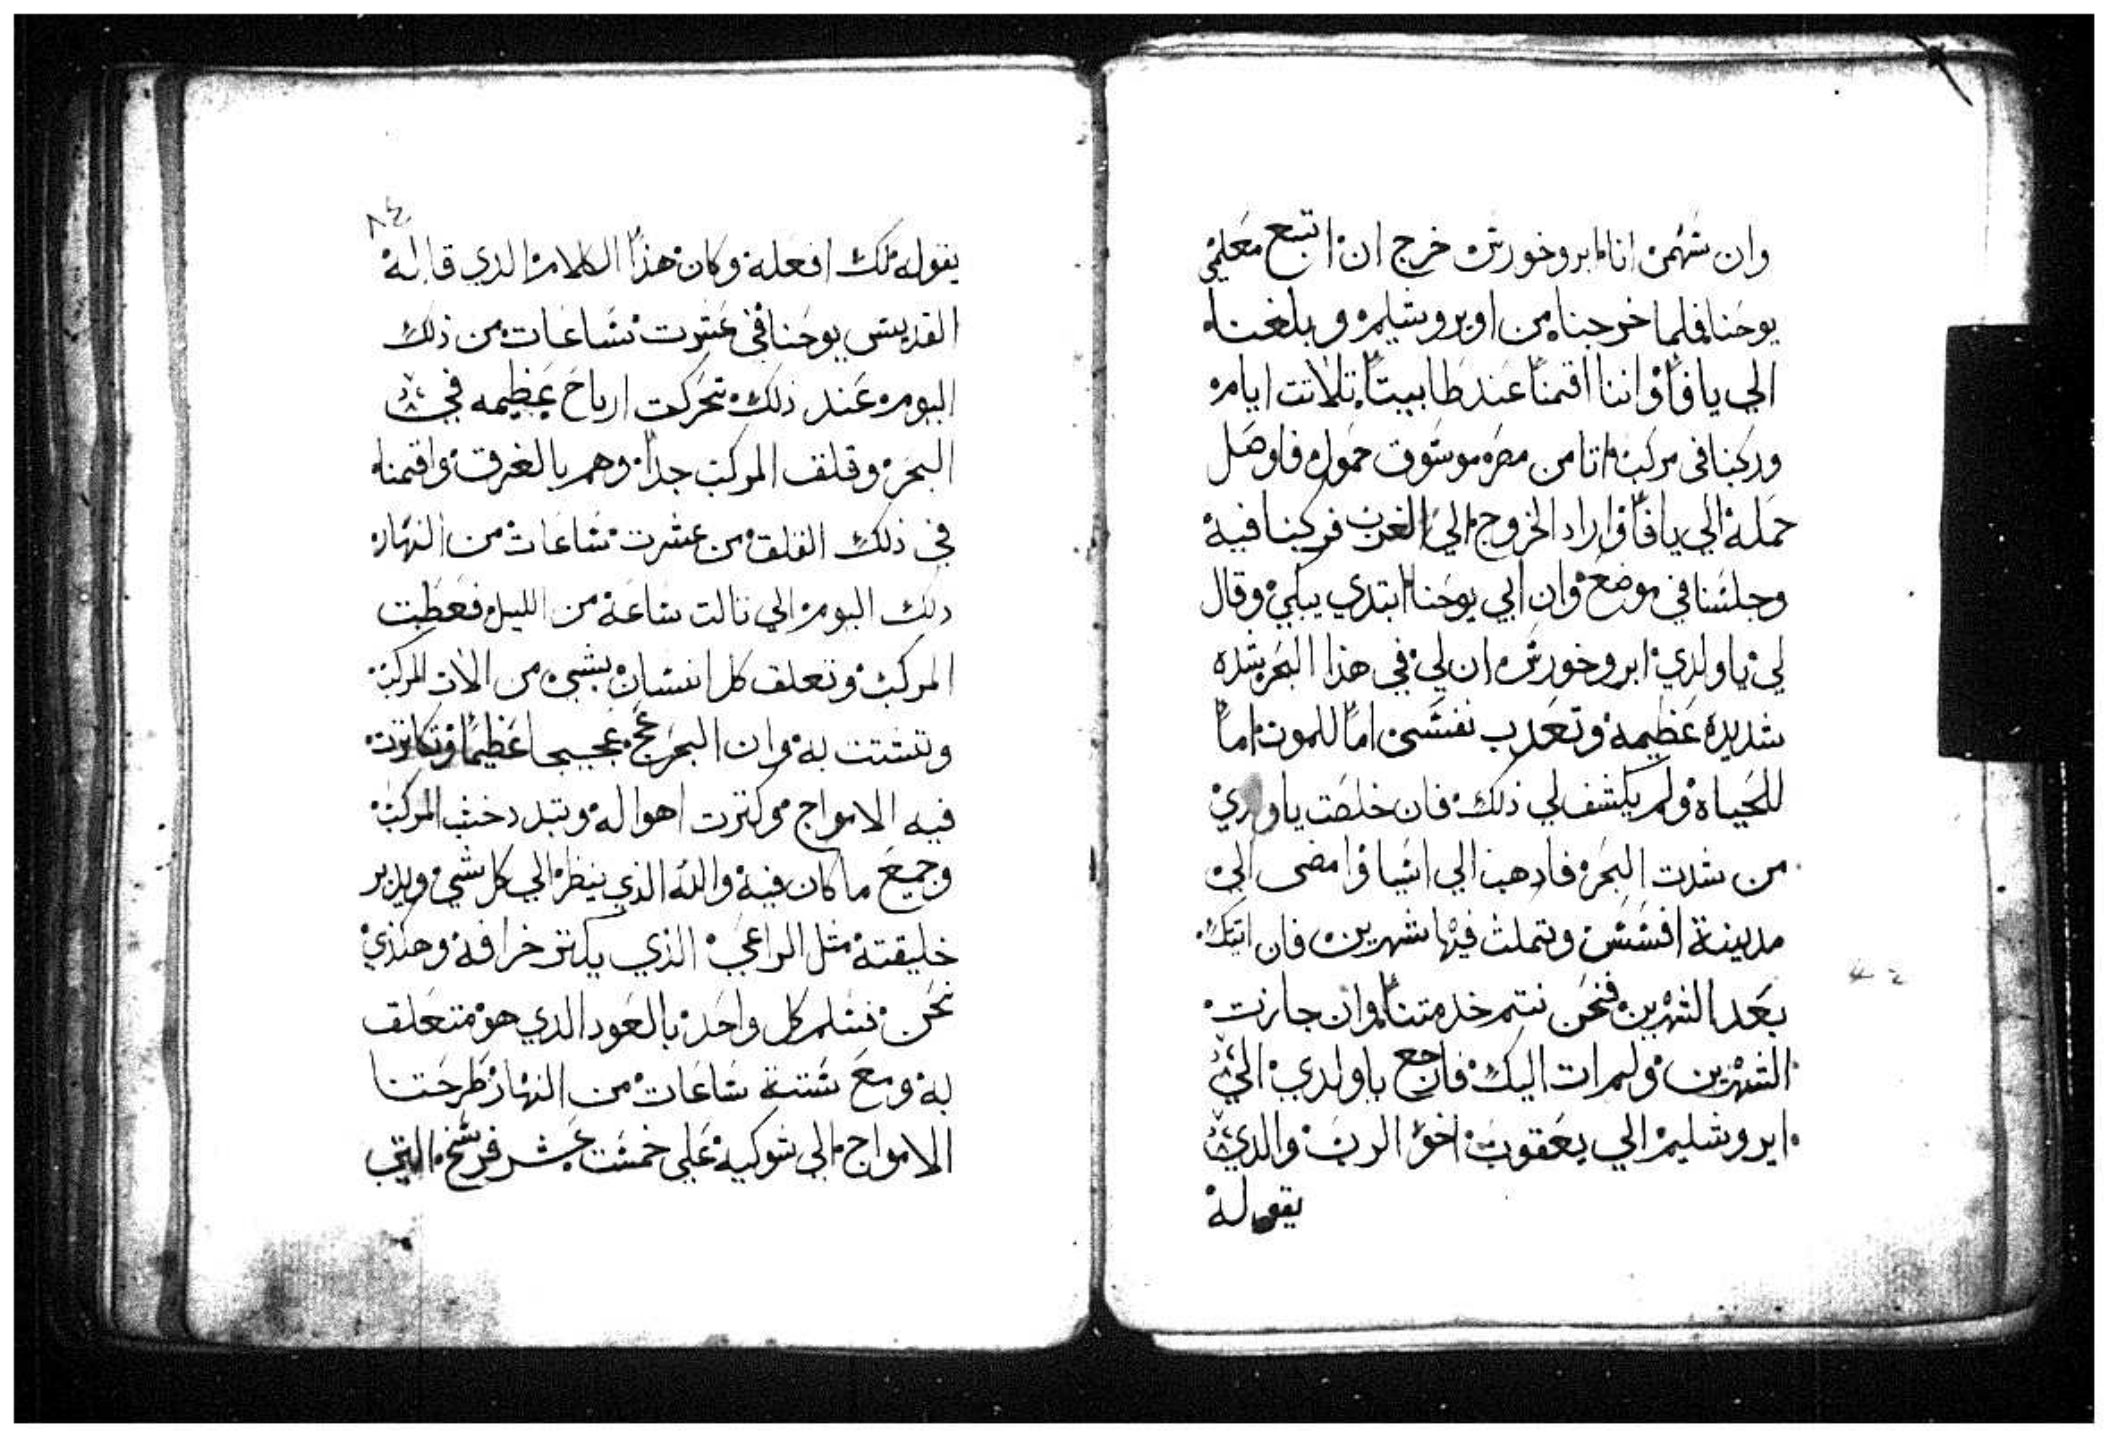 وان سهمي انا ابروخورس خرج ان اتبع معلمي
يوحنا فلما خرجنا من اوبروشليم وبلغنا
الي يافا واننا اقمنا عند طابيتا تلاتت ايام
وركبنا في مركب اتا من مصر موسوق حمول فاوصل
حمله الي يافا واراد الخروج الي الغرب فركبنا فيه
وجلسنا في موضع وان ابي يوحنا ابتدي يبكي وقال
لي يا ولدي ابروخورس ان لي في هذا البحر شده
شديده عظيمه وتعدب نفسي اما للموت اما
للحياه ولم يكشف لي ذلك فان خلصت يا ولدي
من شدت البحر فادهب الي اسيا وامضى الي
مدينة افسس وتملث فيها شهرين فان اتيتك
بعد الشهرين فنحن نتم خدمتنا وان جازت
الشهرين ولم ات اليك فارجع يا ولدي الي
ايروشليم الي يعقوب اخو الرب والدي
يقوله
٨٤
يقوله لك افعله وكان هذا الكلام الدي قاله
القديس يوحنا في عشرت ساعات من ذلك
اليوم عند ذلك تحركت ارياح عظيمه في
البحر وقلق المركب جدا وهم بالغرق واقمنا
في ذلك القلق من عشرت ساعات من النهار
دلك اليوم الي تالت ساعة من الليل فعطبت
المركب وتعلق كل انسان بشي من الات المركب
وتشتت به وان البحر عج عجيجا عظيما وتكاترت
فيه الامواج وكترت اهواله وتبدد خشب المركب
وجميع ما كان فيه والله الذي ينظر الي كل شي ويدبر
خليقته مثل الراعي الذي يكتر خرافه وهكذي
نحن نسلم كل واحد بالعود الدي هو متعلق
به ومع ستة ساعات من النهار طرحتنا
الامواج الي سوكيه علي خمست عشر فرسخ التي